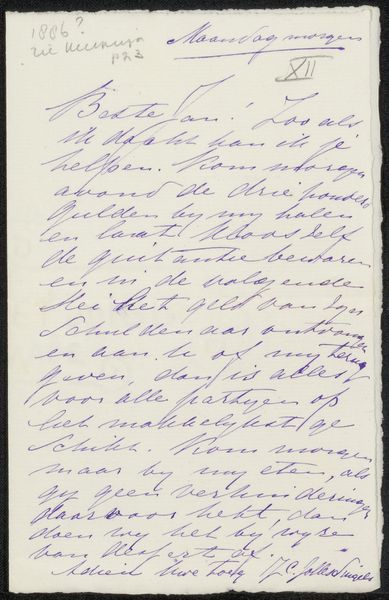 1886?
zie
p 23
Maandag morgen
XII
Beste Jan! Zoo als
ik dacht kan ik je
helpen. Kom morgen
avond de drie honderd
gulden by my halen
en laat zelf
de quitantie bewaren
en in de volgende
Mei het geld van zyn
Schuldenaar ontvangen
en aan U of my terug
geven, dan is alles
voor alle partyen op
het makkelykst ge
schikt. Kom morgen
maar by my eten, als
gy geen verhinderingen
daarvoor hebt, dan
doen wy het by wyze
van dessert
Adieu Uwe